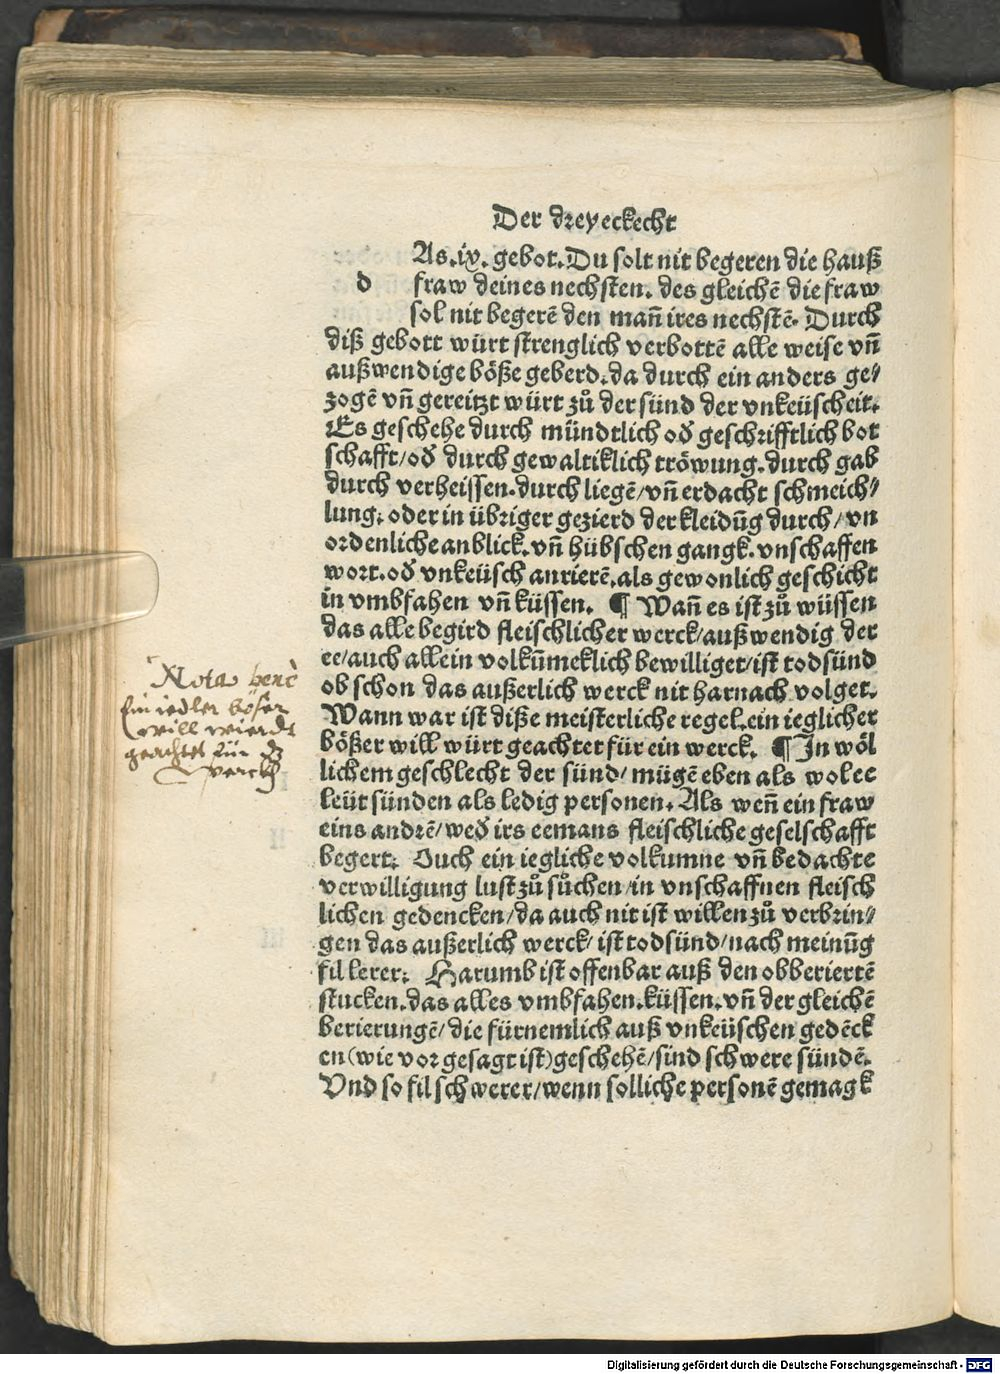 Der dreyeckecht
As. ix. gebot. Du solt nit begeren die hauß
d fraw deines nechsten. des gleichē die fraw
sol nit begerē den mañ ires nechstē. Durch
diß gebott würt strenglich verbottē alle weise vñ
außwendige böße geberd. da durch ein anders ge⸗
zogē vñ gereitzt würt zů der sünd der vnkeüscheit.
Es geschehe durch mündtlich oď geschrifftlich bot
schafft/ oď durch gewaltiklich tröwung. durch gab
durch verheissen. durch liegē/ vñ erdacht schmeich⸗
lung. oder in übriger gezierd der kleidūg durch/ vn
ordenliche anblick. vñ hübschen gangk. vnschaffen
wort. oď vnkeüsch anrierē. als gewonlich geschicht
in vmbfahen vñ küssen. ¶ Wañ es ist zů wüssen
das alle begird fleischlicher werck/ außwendig der
ee/ auch allein volkūmeklich bewilliget/ ist todsünd
ob schon das außerlich werck nit harnach volget.
Wann war ist diße meisterliche regel. ein ieglicher
bößer will würt geachtet für ein werck. ¶ In wöl
lichem geschlecht der sünd/ mügē eben als wol ee
leüt sünden als ledig personen. Als weñ ein fraw
eins andrē/ weď irs eemans fleischliche geselschafft
begert. Ouch ein iegliche volkumne vñ bedachte
verwilligung lust zů sůchen/ in vnschaffnen fleisch
lichen gedencken/ da auch nit ist willen zů verbrin⸗
gen das außerlich werck/ ist todsünd/ nach meinūg
fil lerer. Harumb ist offenbar auß den obberiertē
stucken. das alles vmbfahen. küssen. vñ der gleichē
berierungē/ die fürnemlich auß vnkeüschen gedēck
en (wie vor gesagt ist) geschehē/ sind schwere sündē.
Vnd so fil schwerer/ wenn solliche personē gemagk
Nota benè
Ein iedler böser
will wierdt
geachtet für dz
werckh
Digitalisierung gefördert durch die Deutsche Forschungsgemeinschaft - DFG